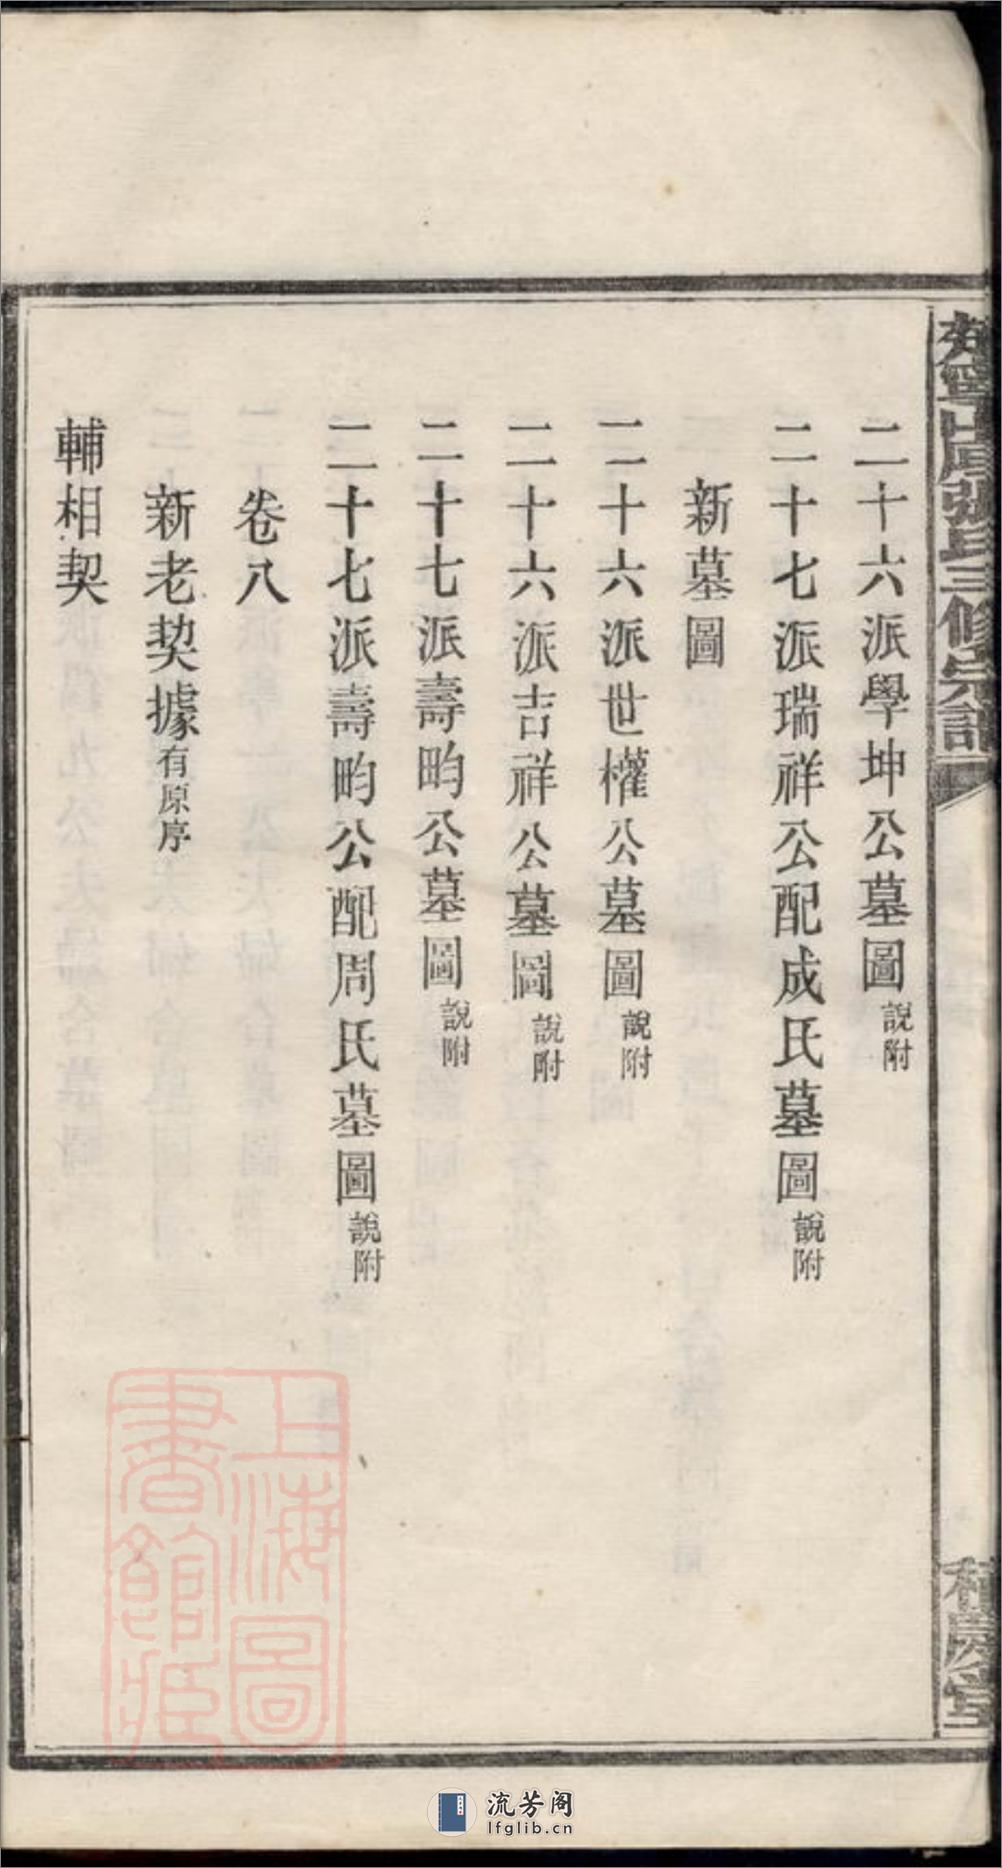 二十六派學坤公墓圖說附
二十七派瑞祥公配成氏墓圖說附
新墓圖
二十六派世權公墓圖說附
二十六派吉祥公墓圖說附
二十七派壽畇公墓圖說附
二十七派壽畇公配周氏墓圖說附
卷八
新老契據有原序
輔相契
上海圖
書館藏
流芳阁
lfglib.cn